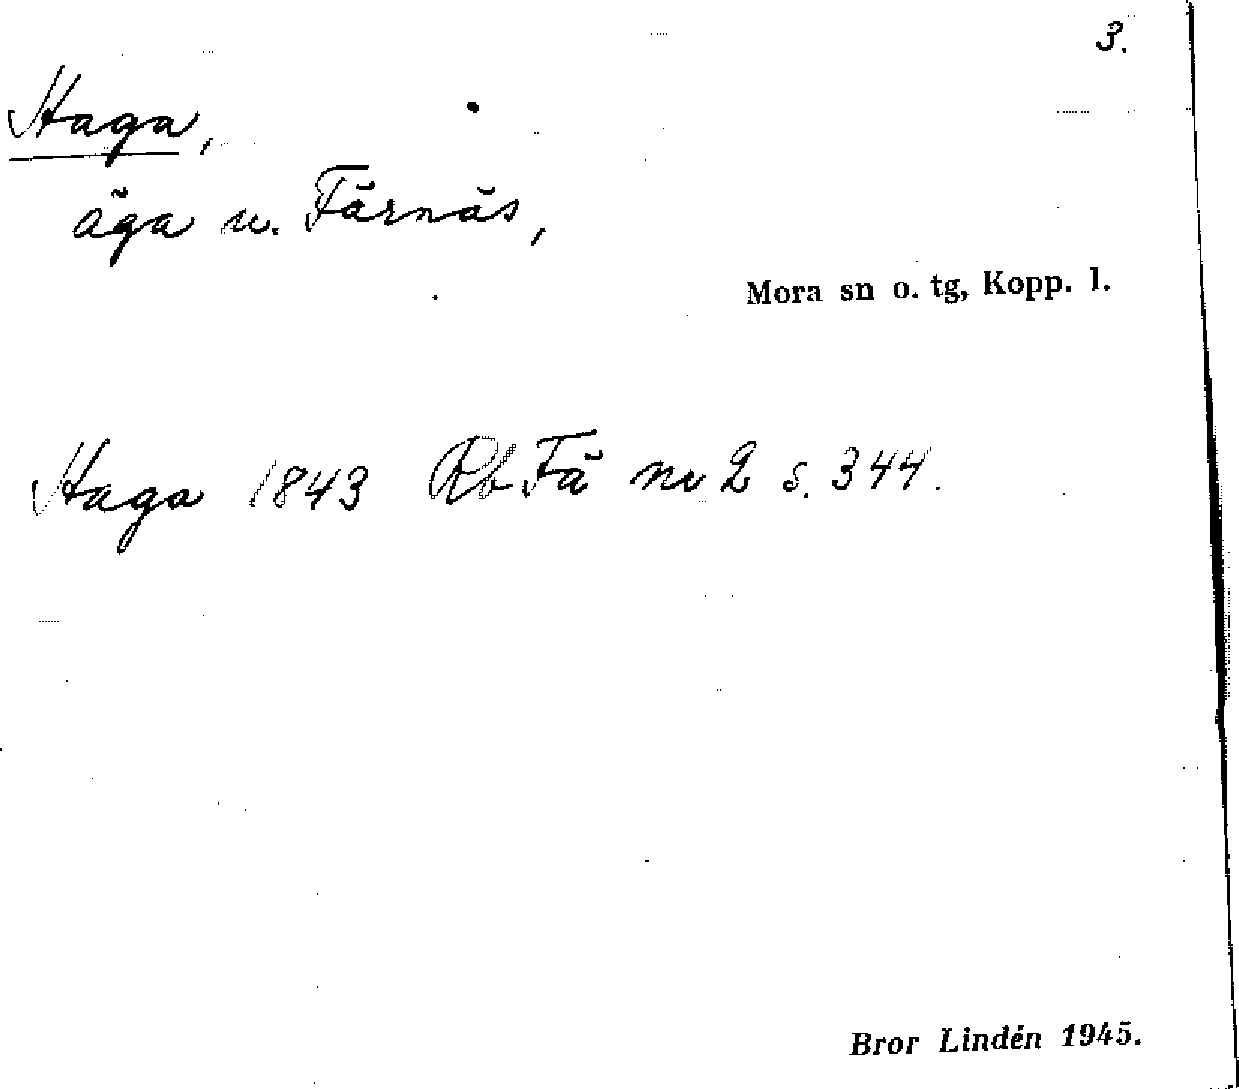 3.
Haga,
äga u. Färnäs,
Mora sn o. tg, Kopp. l.
Haga 1843 Rb Fä nr 2 s. 344.
Bror Lindén 1945.